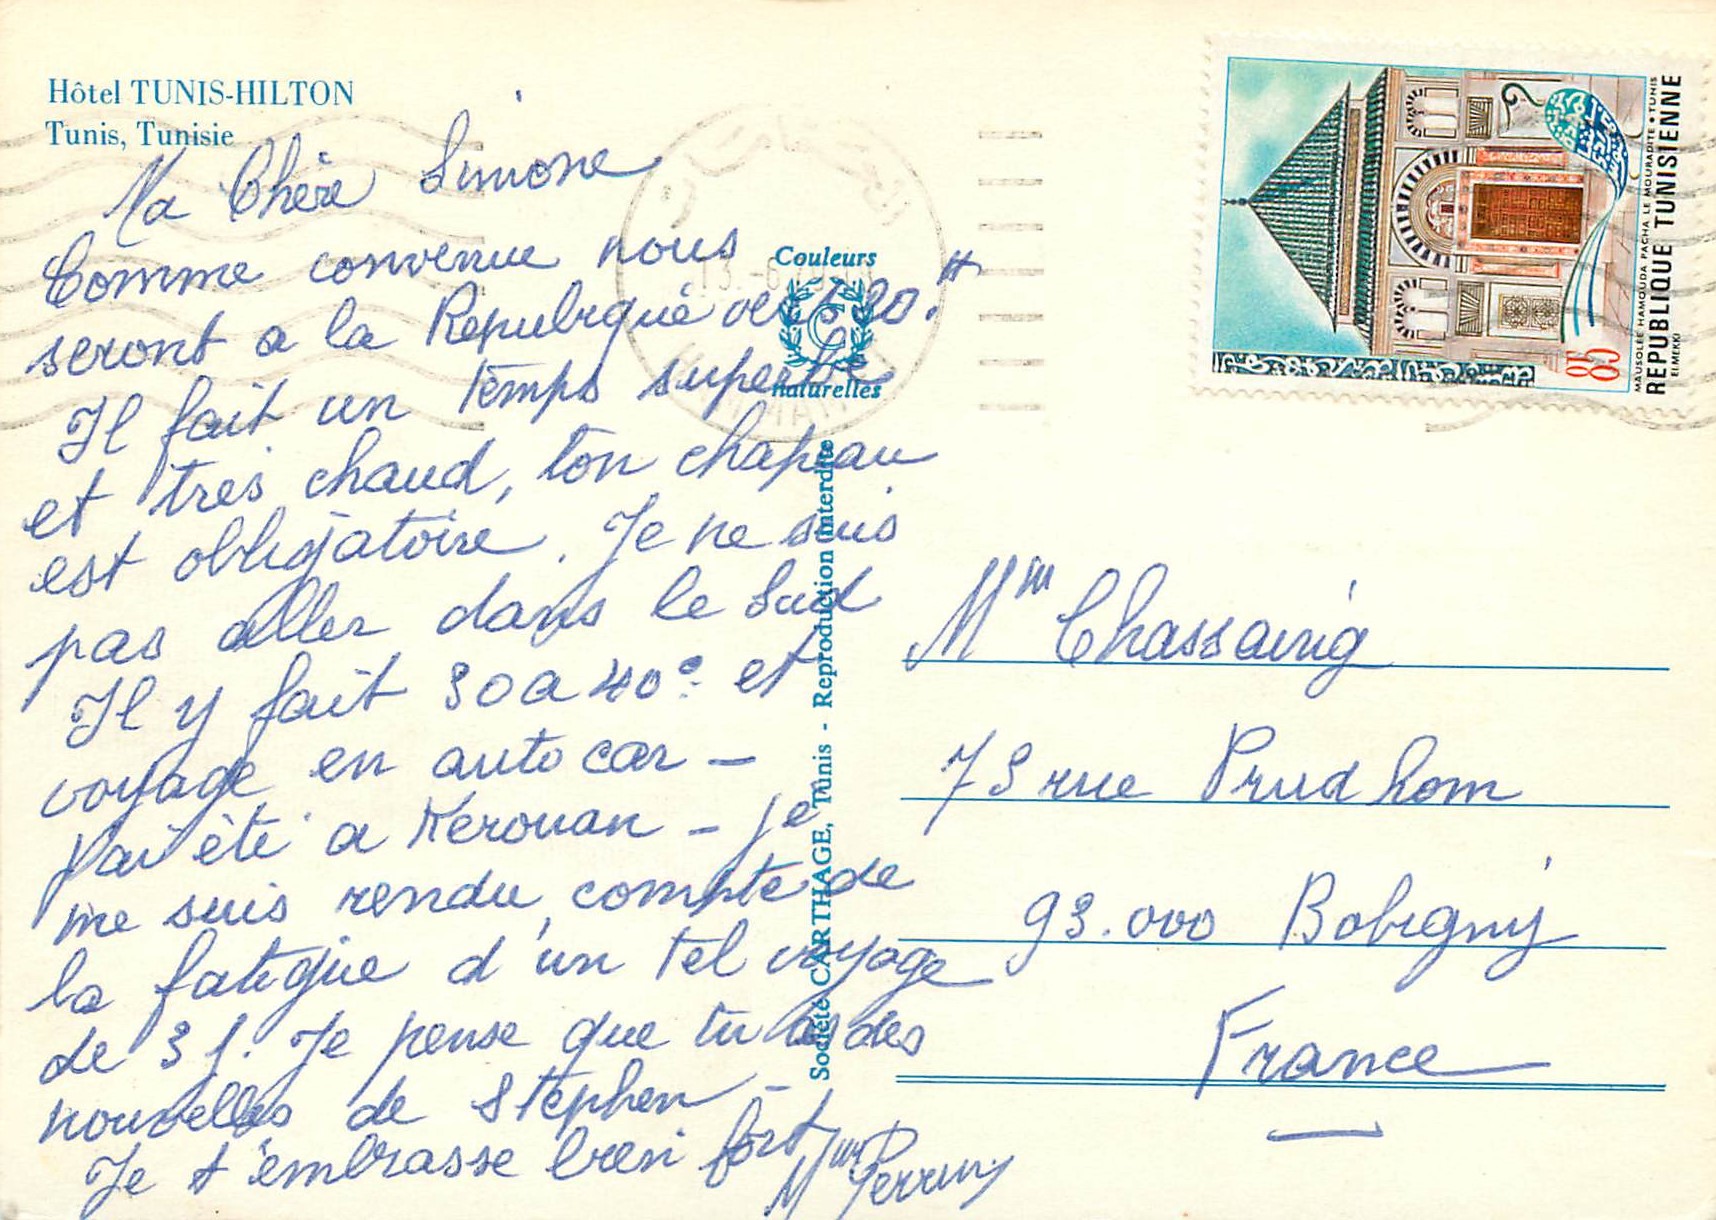 Hôtel TUNIS-HILTON
Tunis, Tunisie
Ma Chère Simone
Comme convenue nous
seront a la Republique
Il fait un temps superbe
et très chaud, ton chapeau
est obligatoire. Je ne suis
pas aller dans le Sud
Il y fait 30 a 40° et
voyage en autocar –
J'ai été a Kerouan – je
me suis rendu compte de
la fatigue d'un tel voyage
de 3 j. Je pense que tu as des
nouvelles de Stephen –
Je t'embrasse bien fort
Couleurs
C
naturelles
Société CARTHAGE, Tunis - Reproduction interdite
13.-6
RÉPUBLIQUE TUNISIENNE
MAUSOLÉE HAMOUDA PACHA LE MOURADITE • TUNIS
ELMEKKI
Mme Chassaing
73 rue Prudhom
93.000 Bobigny
France